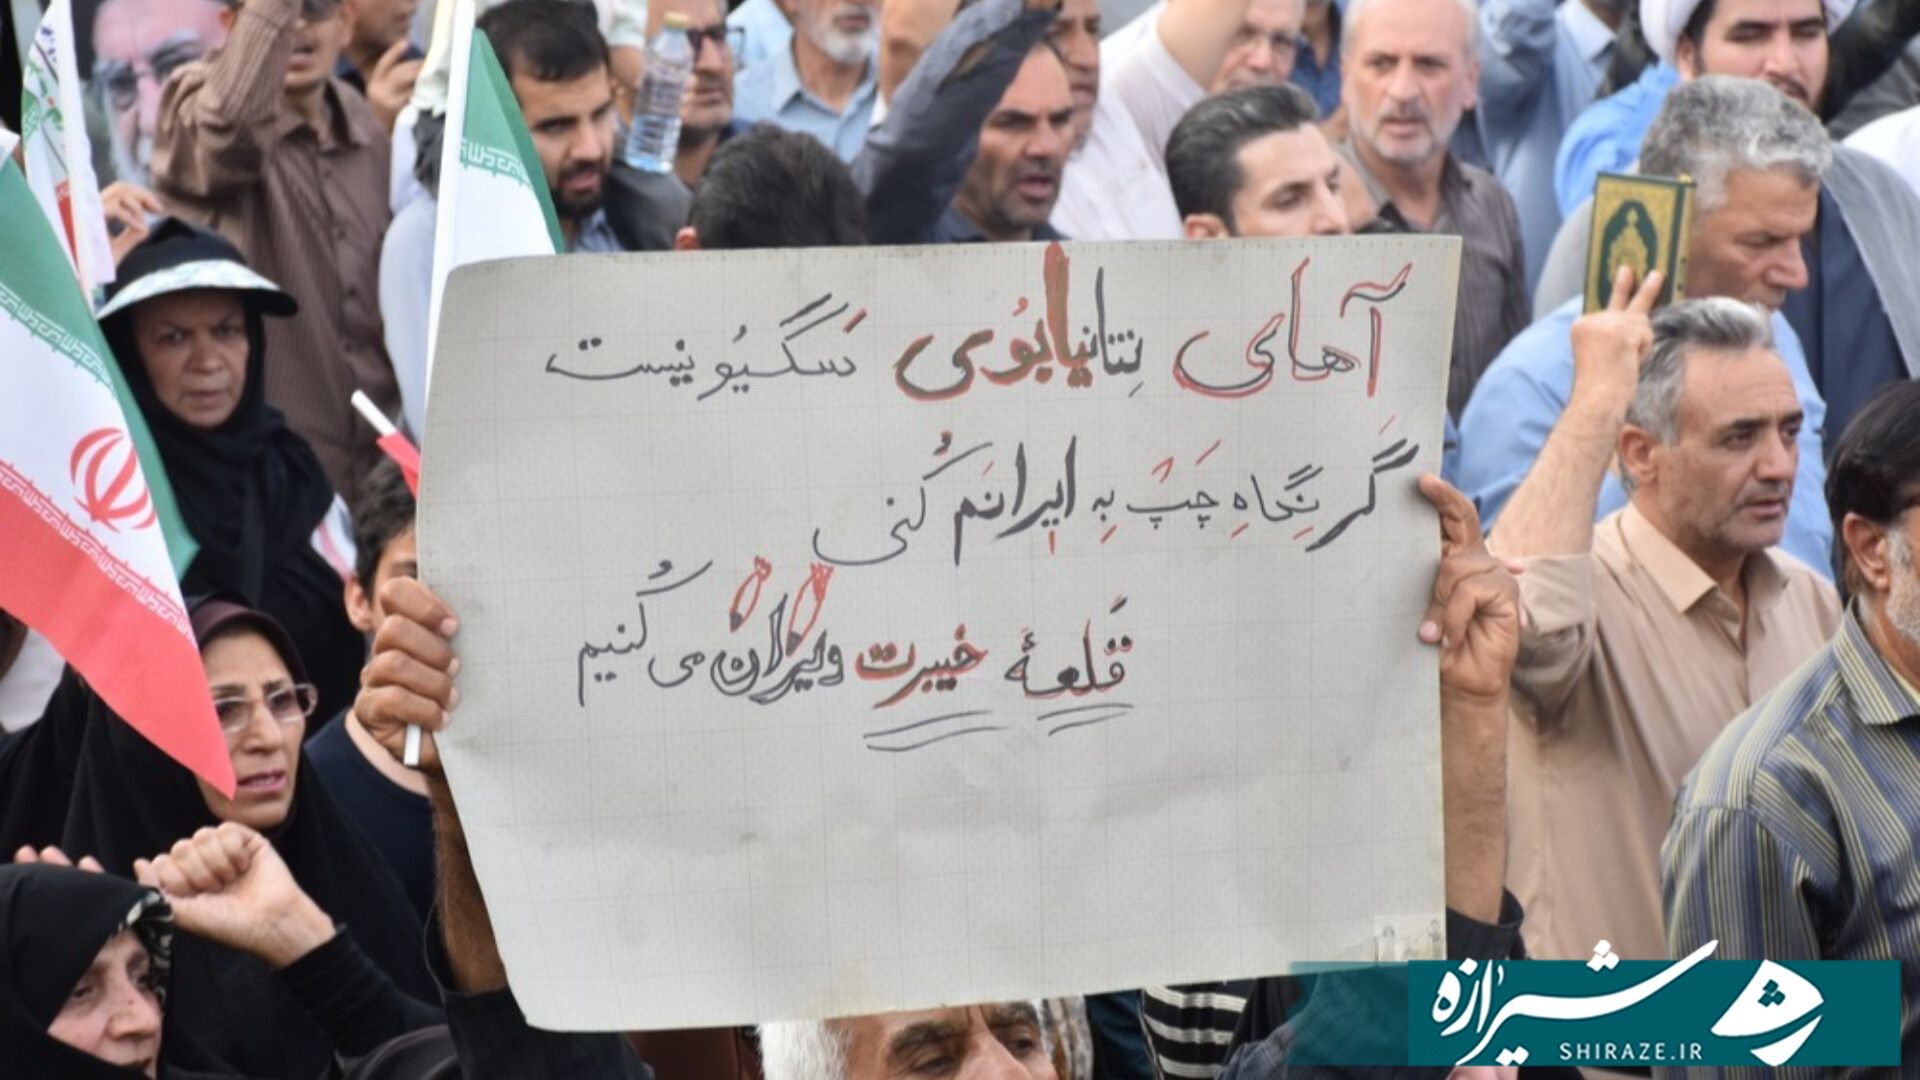 آهای نتانیابوی سگیونیست
گر نگاه چپ به ایرانم کنی
قلعهٔ خیبرت ویران می کنیم
شیرازه
SHIRAZE.IR